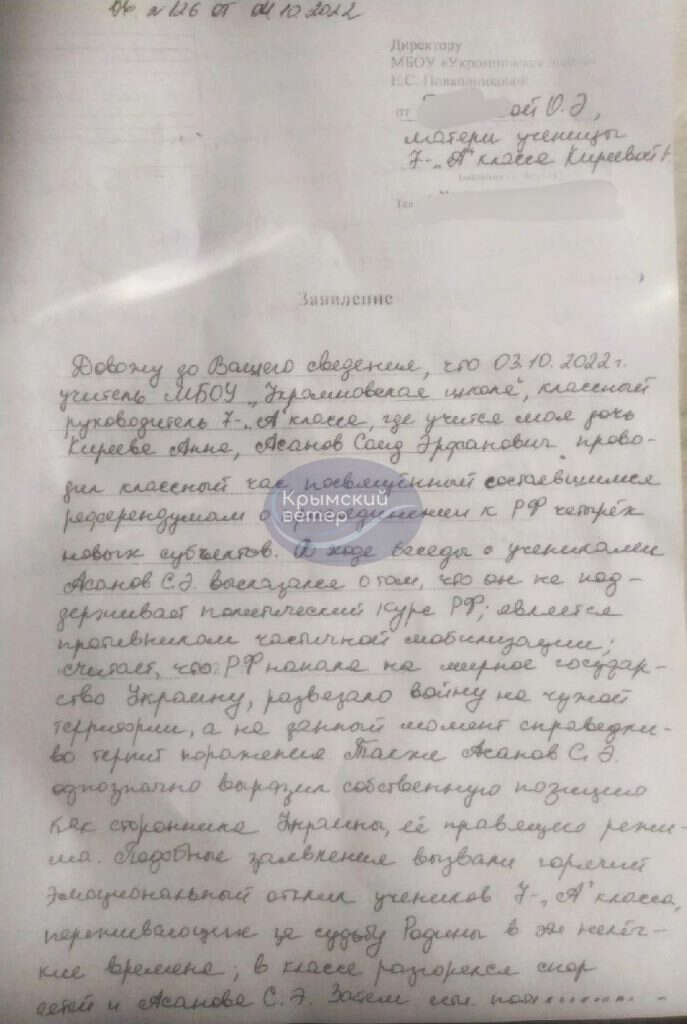 № 126 от 04.10.2022
Директору
МБОУ
от ой О.Э,
матери ученицы
7-„А" класса Киреевой
Тел
Заявление
Довожу до Вашего сведения, что 03.10.2022 г.
учитель МБОУ „Укромновская школа", классный
руководитель 7-„А" класса, где учится моя дочь
Киреева Анна, Асанов Саид Эрфанович прово-
дил классный час посвящённый состоявшимся
референдумам о присоединении к РФ четырёх
новых субъектов. В ходе беседы с учениками
Асанов С.Э. высказался о том, что он не под-
держивает политический курс РФ; является
противником частичной мобилизации;
считает, что РФ напала на мирное государ-
ство Украину, развязало войну на чужой
территории, а на данный момент справедли-
во терпит поражения Также Асанов С.Э.
однозначно выразил собственную позицию
как сторонника Украины, её правящего режи-
ма. Подобные заявления вызвали горячий
эмоциональный отклик учеников 7-„А" класса,
переживающих за судьбу Родины в эти нелёг-
кие времена; в классе разгорелся спор
детей и Асанова С.Э. Затем
Крымский
ветер